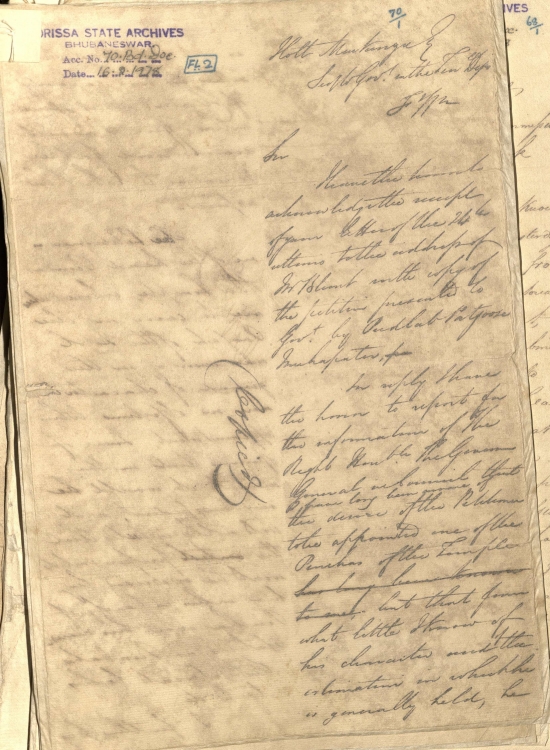 ORISSA STATE ARCHIVES
BHUBANESWAR.
Acc. No. 70
Date... 16.8.1975
Fl. 2
70/1
Holt Mackenzie
Secy to Govt in the Terr Dept
Sir
I have the honor to
acknowledge the receipt
of your letter of the 24
ultimo to the address of
Mr Blunt with copy of
the petition presented to
Govt by
Mahapater
In reply I have
the honor to report for
the information of the
Right Honble The Govenor
General in Council that
I have long been aware of
the desire of the Petitioner
to be appointed one of the
of the Temple
but that from
what little I know of
his character and the
estimation in which he
is generally held, he
Copied